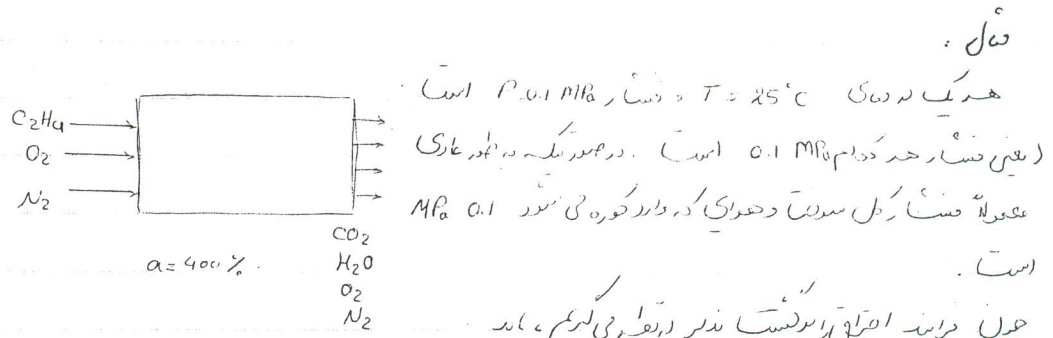 مثال :
هر یک در دمای T = 25°C و فشار P 0.1 MPa است
(یعنی فشار هر کدام 0.1 MPa است . در صورتیکه به طور عادی
معمولاً فشار کل سوخت و هوای که وارد کوره می شود 0.1 MPa
است .
چون فرایند احتراق را برگشت پذیر در نظر می گیریم ، باید
C2H4
O2
N2
a = 400 %
CO2
H2O
O2
N2